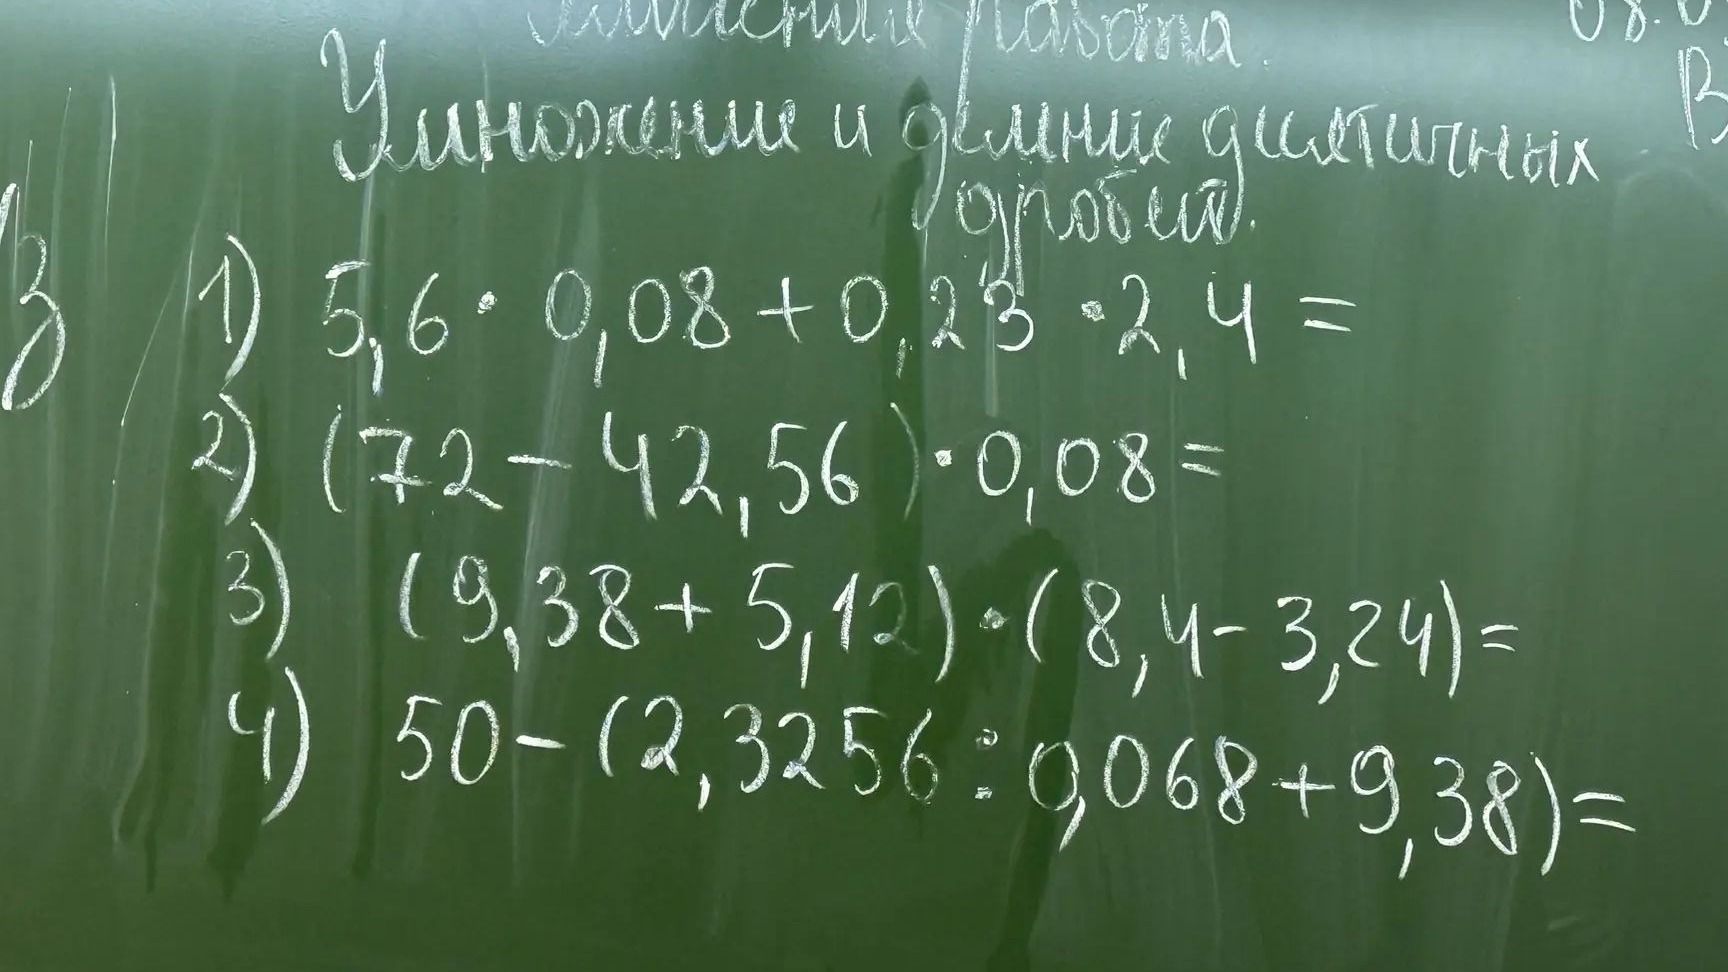 работа.
08.0
В
Умножение и деление десятичных
дробей.
В
1) 5,6 · 0,08 + 0,23 · 2,4 =
2) (72 - 42,56) · 0,08 =
3) (9,38 + 5,12) · (8,4 - 3,24) =
4) 50 - (2,3256 : 0,068 + 9,38) =